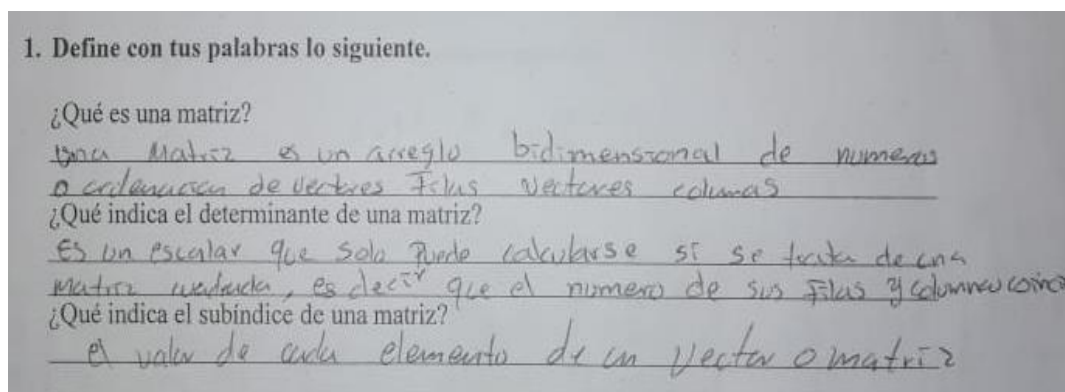 1. Define con tus palabras lo siguiente.
¿Qué es una matriz?
una Matriz es un arreglo bidimensional de numeros
o ordenacion de vectores Filas vectores columas
¿Qué indica el determinante de una matriz?
Es un escalar que solo Puede calcularse si se trata de una
matriz cuadrada, es decir que el numero de sus Filas y columnas coinc
¿Qué indica el subíndice de una matriz?
el valor de cada elemento de un Vector o matriz